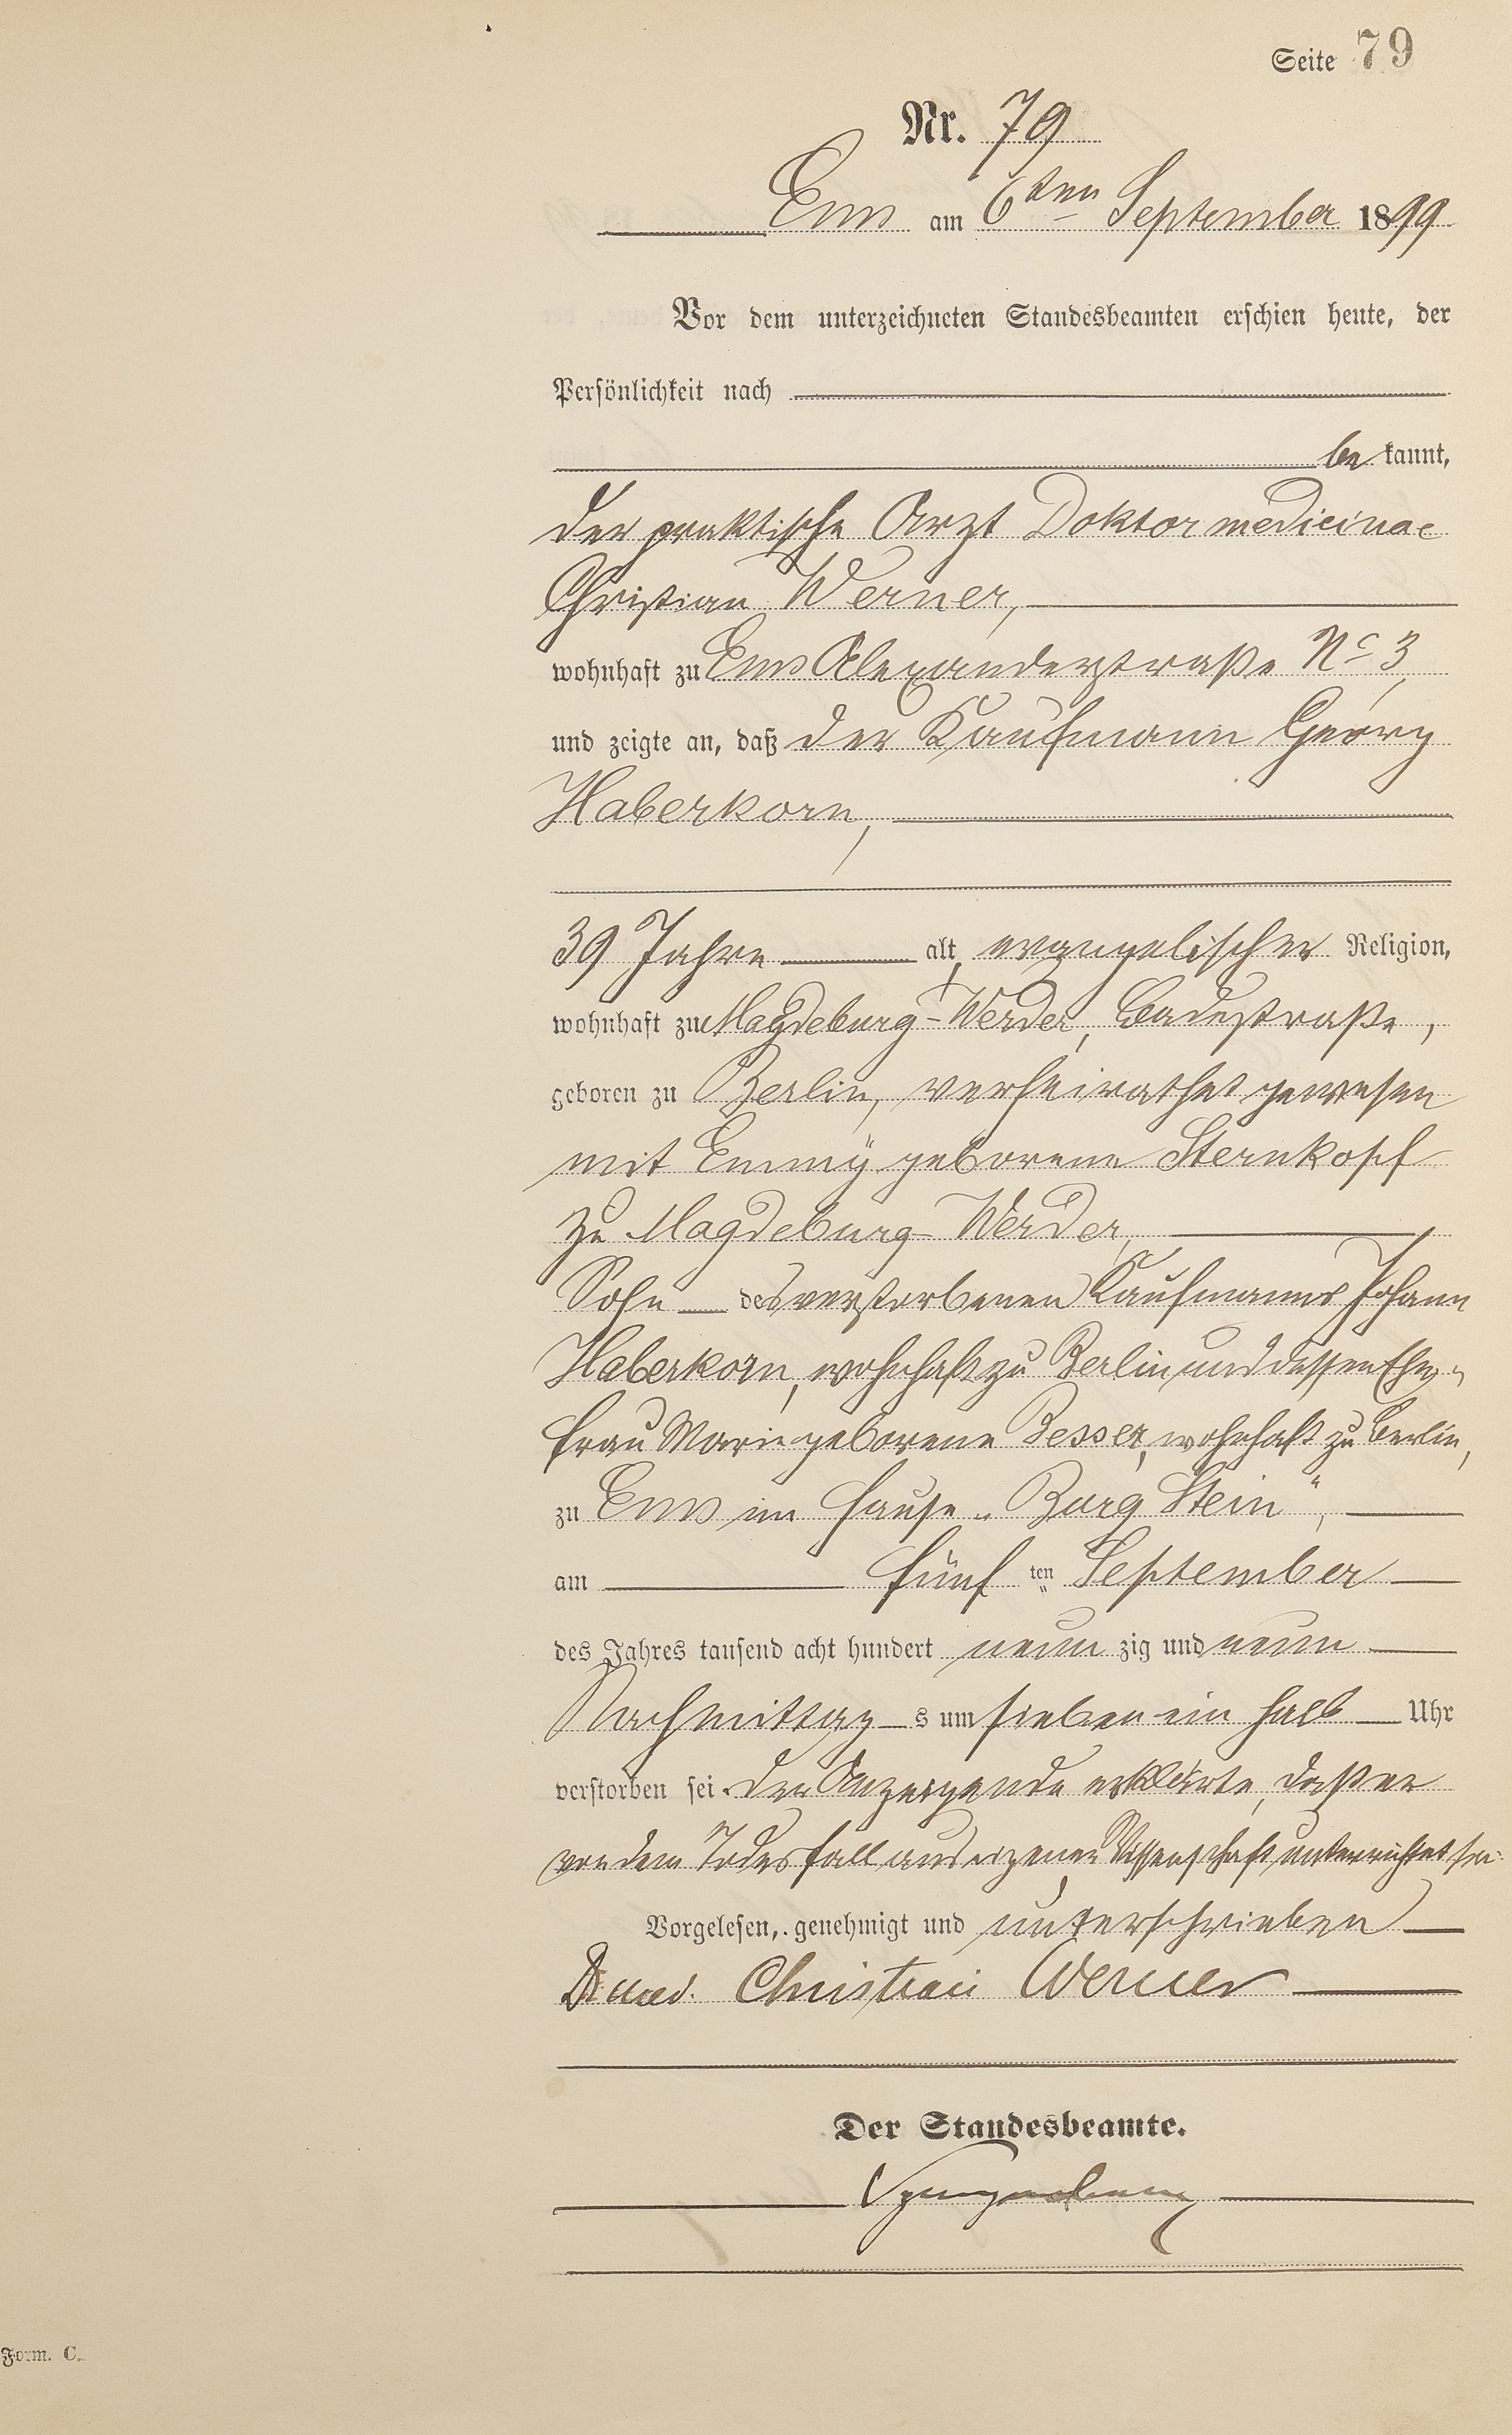 Seite 79
Nr. 79
Ems am 6ten September 1899
Vor dem unterzeichneten Standesbeamten erschien heute, der
Persönlichkeit nach
be kannt,
der praktische Arzt Doktor medicinae
Christian Werner,
wohnhaft zu Ems Alexanderstraße No 3,
und zeigte an, daß der Kaufmann Georg
Haberkorn,
39 Jahre alt, evangelischer Religion,
wohnhaft zu Magdeburg-Werder, Badestraße,
geboren zu Berlin, verheirathet gewesen
mit Emmy geborene Sternkopf
zu Magdeburg-Werder,
Sohn des verstorbenen Kaufmanns Johann
Haberkorn, wohnhaft zu Berlin und dessen Ehe-
frau Marie geborene Besser, wohnhaft zu Berlin,
zu Ems im Hause „Burg Stein",
am fünf ten September
des Jahres tausend acht hundert neun zig und neun
Nachmittag s um sieben ein halb Uhr
verstorben sei. Der Anzeigende erklärte, daß er
von dem Todesfall aus eigener Wissenschaft unterrichtet sei.
Vorgelesen, genehmigt und unterschrieben
Dr. med. Christian Werner
Der Standesbeamte.
Form. C.